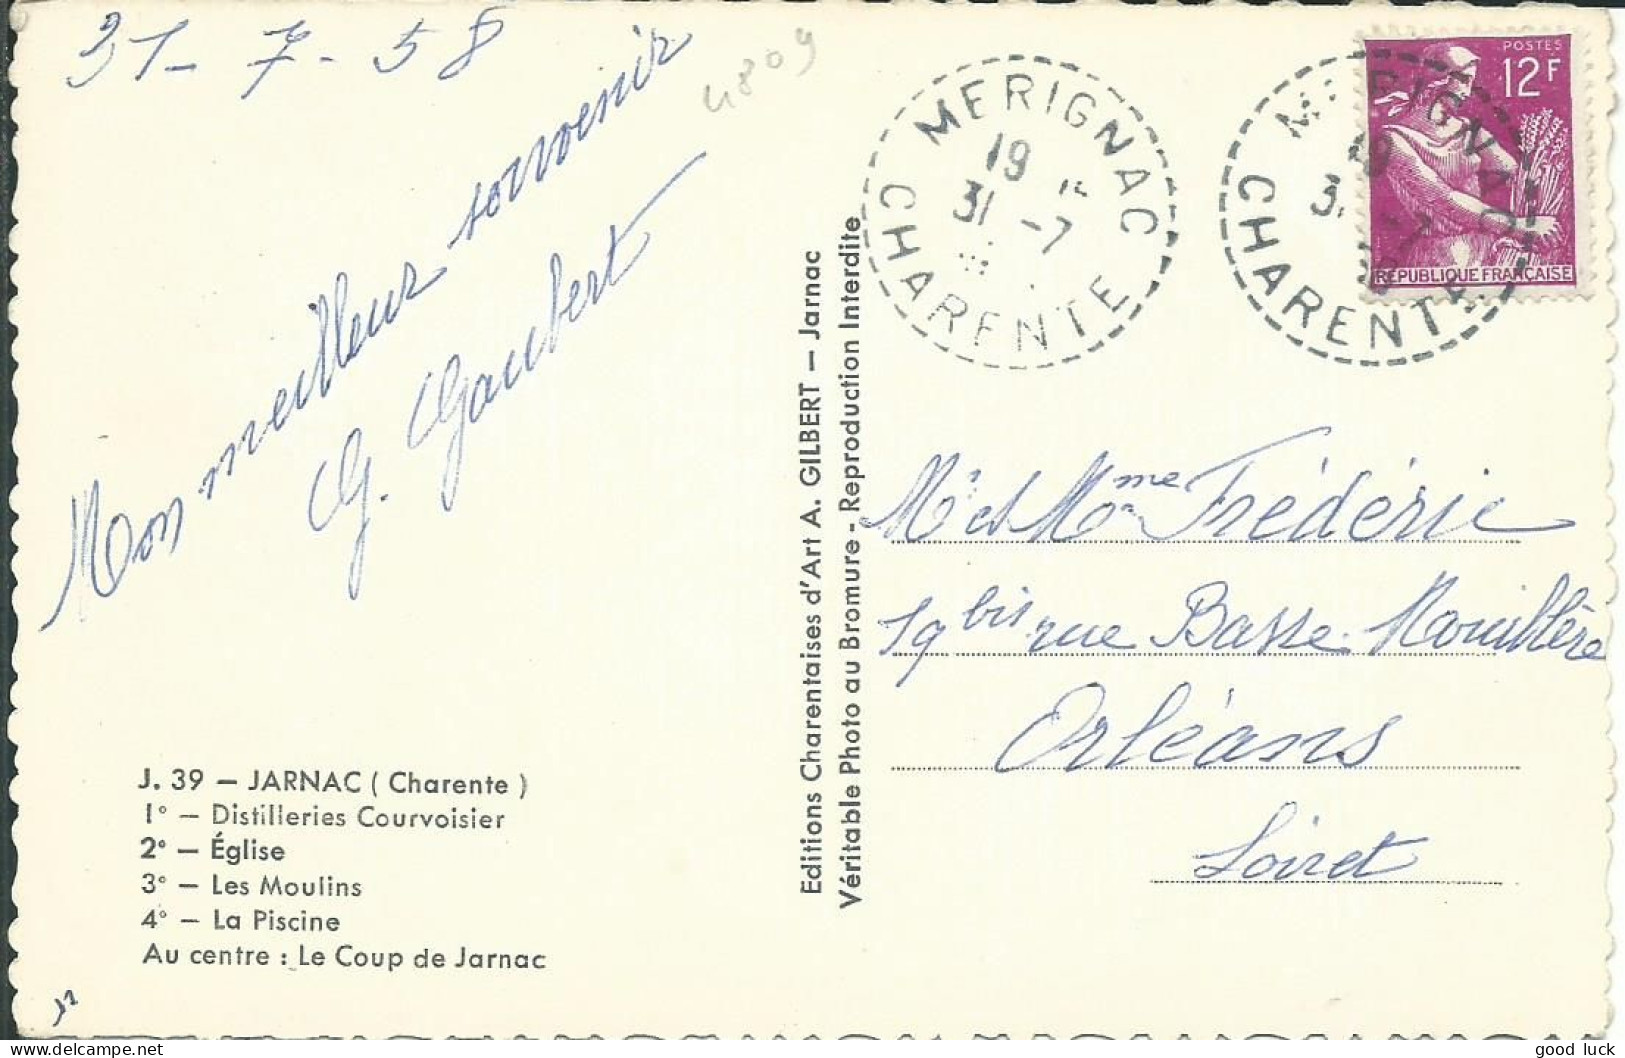 31-7-58
4809
Mon meilleur souvenir
G. Gaubert
J. 39 — JARNAC ( Charente )
1° — Distilleries Courvoisier
2° — Église
3° — Les Moulins
4° — La Piscine
Au centre : Le Coup de Jarnac
Editions Charentaises d'Art A. GILBERT — Jarnac
Véritable Photo au Bromure - Reproduction Interdite
MERIGNAC
19
31 -7
CHARENTE
MERIGNAC
19
-7
CHARENTE
POSTES
12F
REPUBLIQUE FRANÇAISE
Mr et Mme Frédéric
19 bis rue Basse Mouillère
Orléans
Loiret
good luck